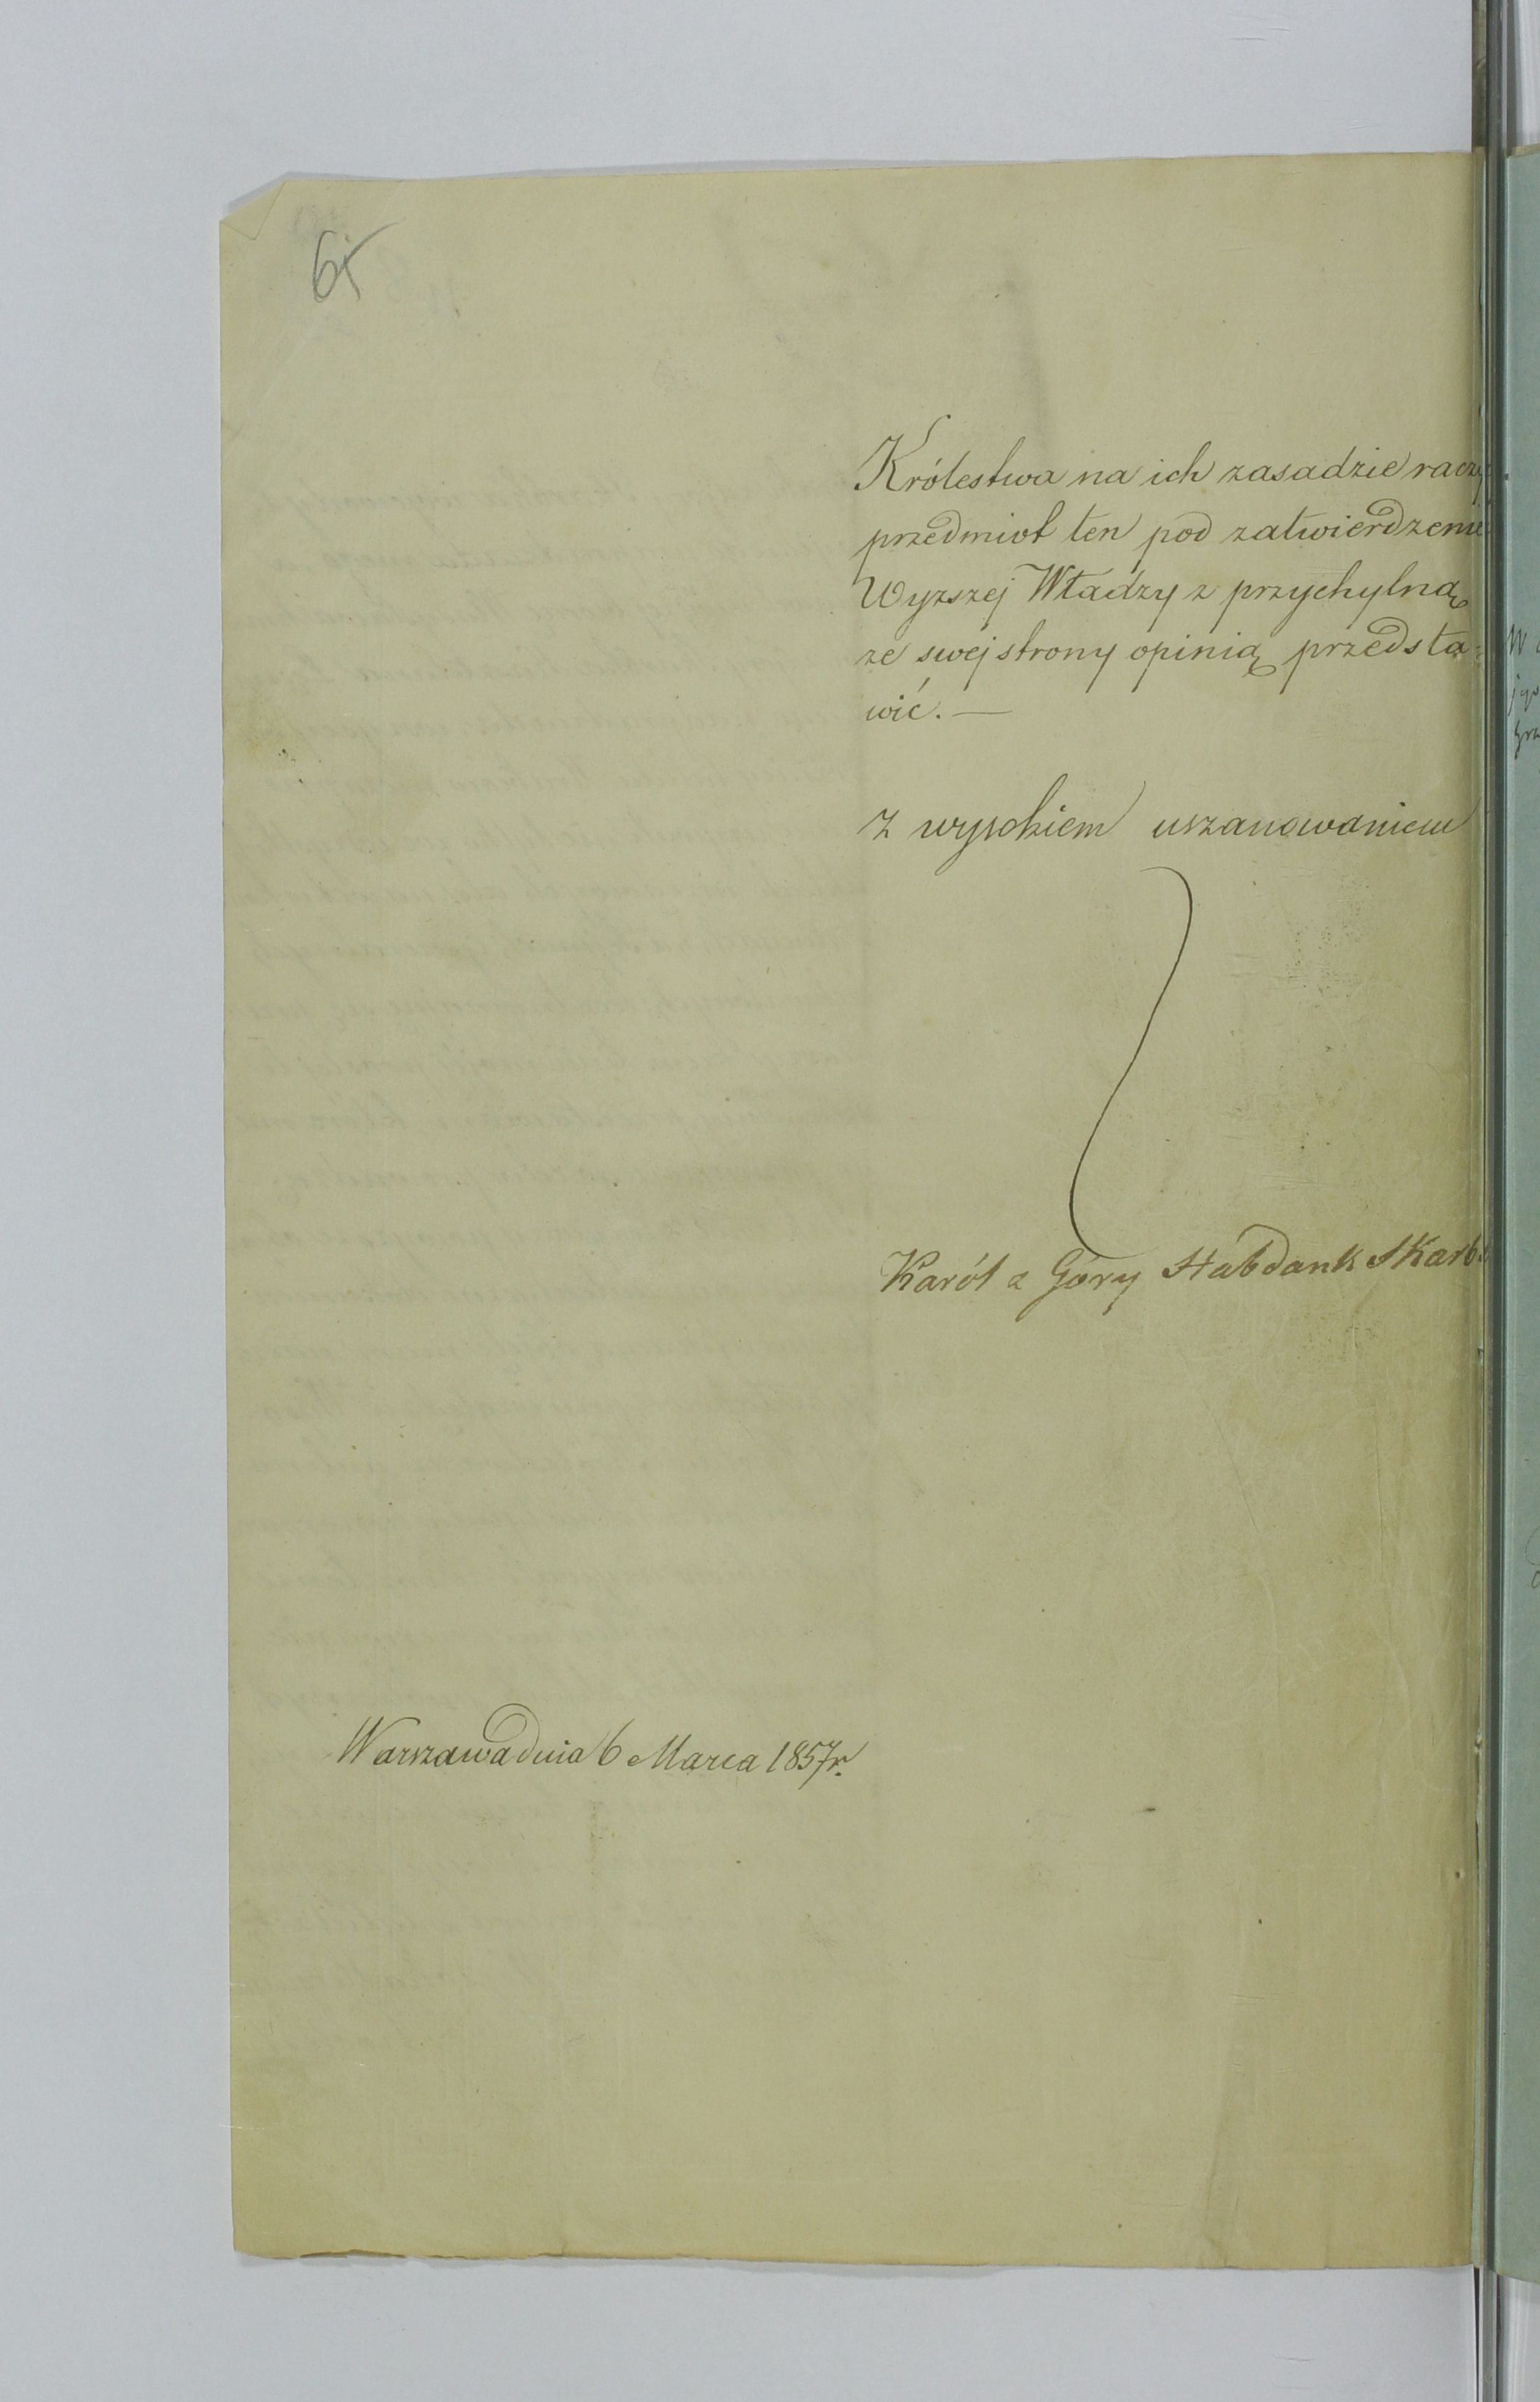 65
Królestwa na ich zasadzie raczy
przedmiot ten pod zatwierdzenie
Wyzszej Władzy z przychylną
ze swej strony opinią przedsta=
wić. —
Z wysokiem uszanowaniem
Karól z Góry Habdank Skarb
Warszawa dnia 6 Marca 1857 r.